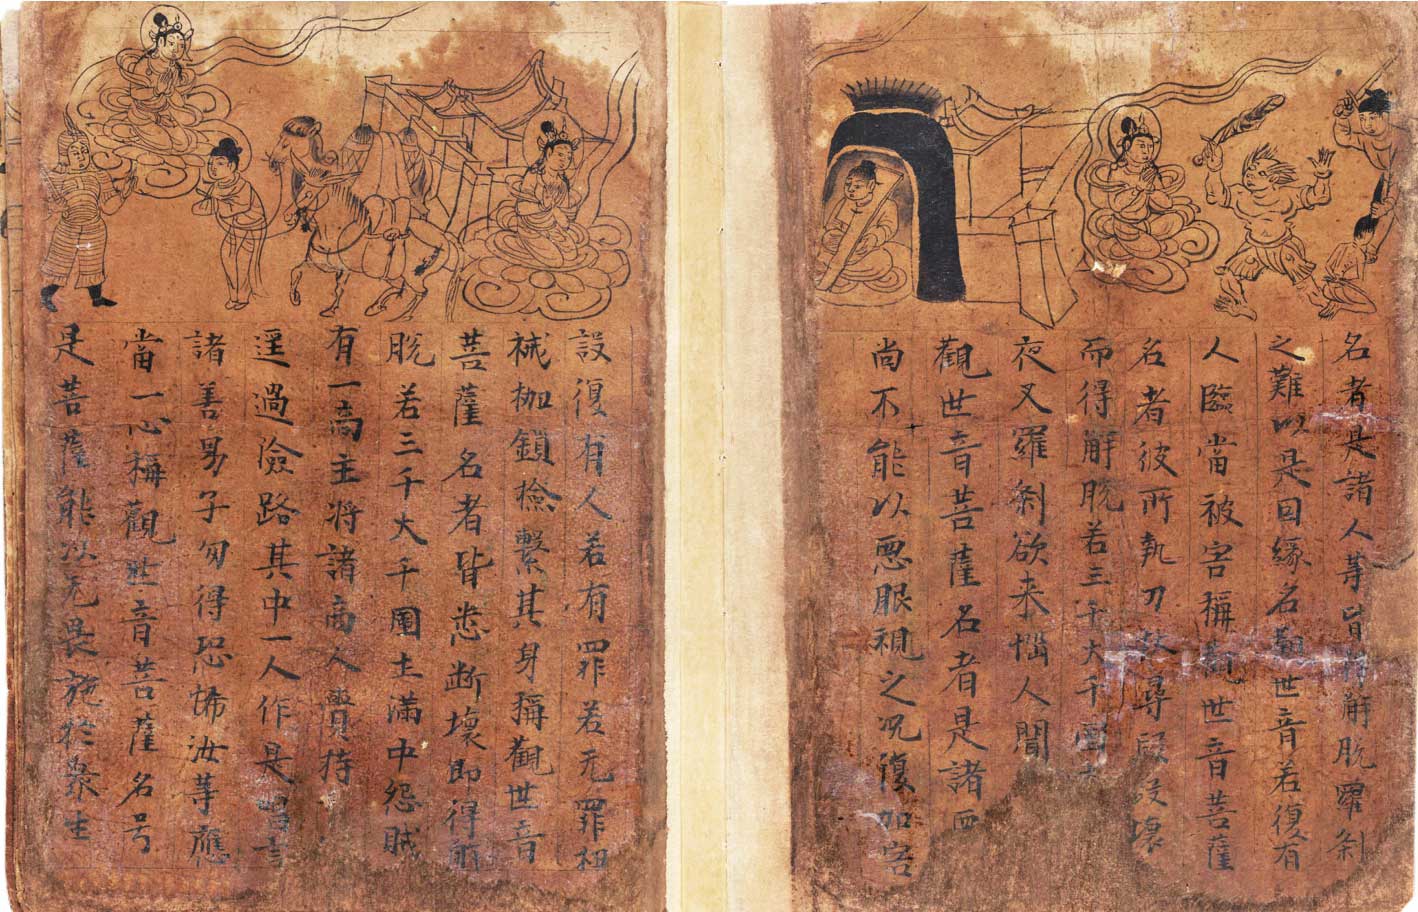 名者是諸人等皆得解脱羅剎
之難以是囙緣名觀世音若復有
人臨當被害稱觀世音菩薩
名者彼所執刀杖尋段段壞
而得解脱若三千大千國
夜叉羅剎欲来惱人聞
觀世音菩薩名者是諸
尚不能以惡眼視之况復加害
設復有人若有罪若无罪杻
械枷鎖撿繫其身稱觀世音
菩薩名者皆悉断壞即得解
脱若三千大千國土滿中怨賊
有一商主将諸商人賫持
逕過險路其中一人作是唱言
諸善男子勿得恐怖汝等應
當一心稱觀世音菩薩名号
是菩薩能以无畏施於衆生